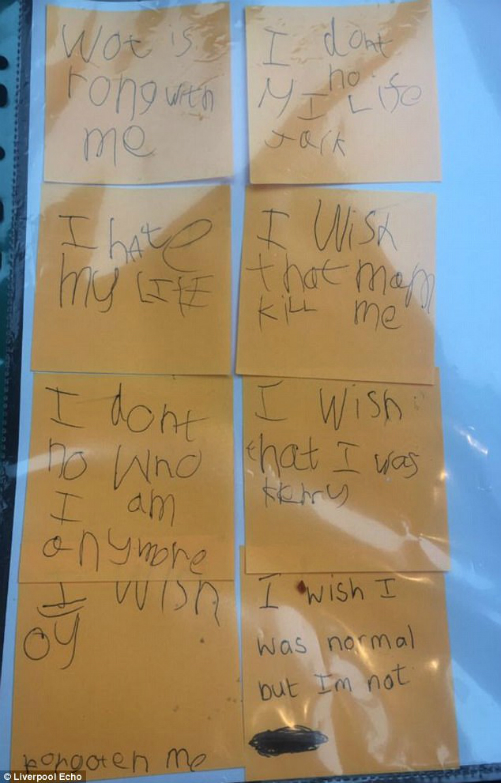 Wot is
rong with
me
I dont
no
My LiFe
Jack
I hatE
my LIFE
I Wish
that mam
kiLL me
I dont
no Who
I am
anymore
I Wish
that I was
I Wish
oy
Forgoten me
I wish I
was normal
but Im not
© Liverpool Echo